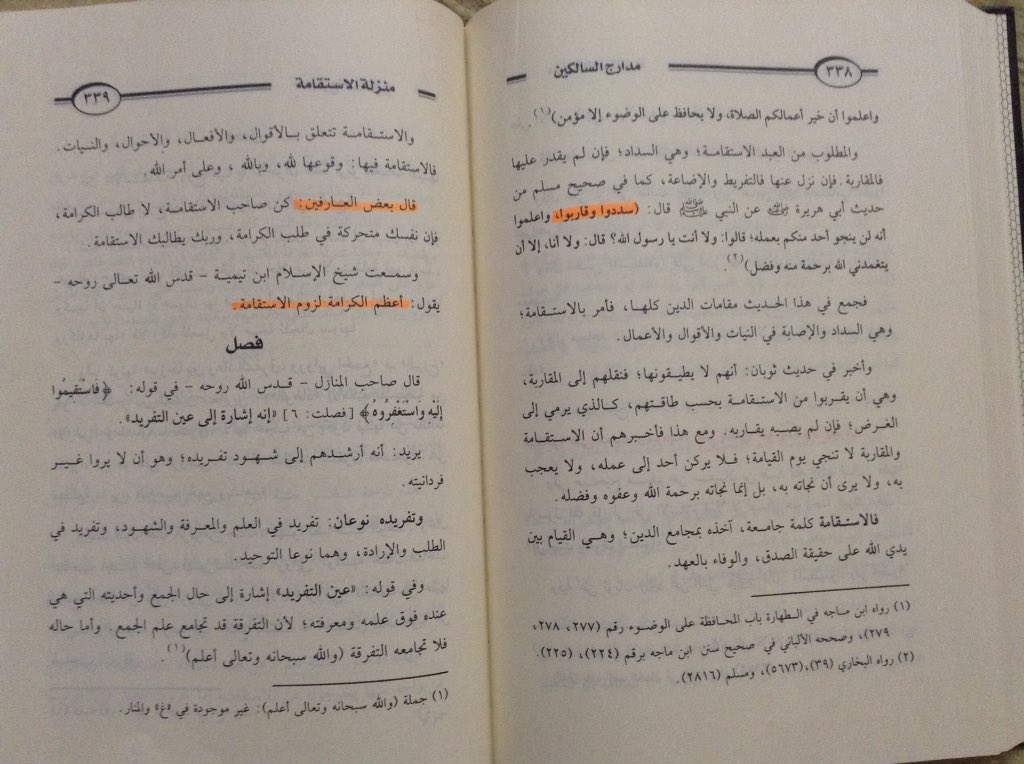 ٣٣٨
مدارج السالكين
واعلموا أن خير أعمالكم الصلاة، ولا يحافظ على الوضوء إلا مؤمن)(١).
والمطلوب من العبد الاستقامة؛ وهي السداد؛ فإن لم يقدر عليها
فالمقاربة. فإن نزل عنها فالتفريط والإضاعة، كما في صحيح مسلم من
حديث أبي هريرة رضي الله عنه عن النبي ﷺ قال: (سددوا وقاربوا، واعلموا
أنه لن ينجو أحد منكم بعمله؛ قالوا: ولا أنت يا رسول الله؟ قال: ولا أنا، إلا أن
يتغمدني الله برحمة منه وفضل)(٢).
فجمع في هذا الحديث مقامات الدين كلها، فأمر بالاستقامة؛
وهي السداد والإصابة في النيات والأقوال والأعمال.
وأخبر في حديث ثوبان: أنهم لا يطيقونها؛ فنقلهم إلى المقاربة،
وهي أن يقربوا من الاستقامة بحسب طاقتهم، كالذي يرمي إلى
الغرض؛ فإن لم يصبه يقاربه. ومع هذا فأخبرهم أن الاستقامة
والمقاربة لا تنجي يوم القيامة؛ فلا يركن أحد إلى عمله، ولا يعجب
به، ولا يرى أن نجاته به، بل إنما نجاته برحمة الله وعفوه وفضله.
فالاستقامة كلمة جامعة، آخذه بمجامع الدين؛ وهي القيام بين
يدي الله على حقيقة الصدق، والوفاء بالعهد.
(١) رواه ابن ماجه في الطهارة باب المحافظة على الوضوء رقم (٢٧٧، ٢٧٨،
٢٧٩)، وصححه الألباني في صحيح سنن ابن ماجه برقم (٢٢٤)، (٢٢٥).
(٢) رواه البخاري (٣٩)،(٥٦٧٣)، ومسلم (٢٨١٦).
منزلة الاستقامة
٣٣٩
والاستقامة تتعلق بالأقوال، والأفعال، والأحوال، والنيات.
فالاستقامة فيها: وقوعها لله، وبالله ، وعلى أمر الله.
قال بعض العارفين: كن صاحب الاستقامة، لا طالب الكرامة،
فإن نفسك متحركة في طلب الكرامة، وربك يطالبك الاستقامة.
وسمعت شيخ الإسلام ابن تيمية - قدس الله تعالى روحه -
يقول: أعظم الكرامة لزوم الاستقامة.
فصل
قال صاحب المنازل - قدس الله روحه - في قوله: ﴿فَاسْتَقِيمُوا
إِلَيْهِ وَاسْتَغْفِرُوهُ﴾ [فصلت: ٦] «إنه إشارة إلى عين التفريد».
يريد: أنه أرشدهم إلى شهود تفريده؛ وهو أن لا يروا غير
فردانيته.
وتفريده نوعان: تفريد في العلم والمعرفة والشهود، وتفريد في
الطلب والإرادة، وهما نوعا التوحيد.
وفي قوله: «عين التفريد» إشارة إلى حال الجمع وأحديته التي هي
عنده فوق علمه ومعرفته؛ لأن التفرقة قد تجامع علم الجمع. وأما حاله
فلا تجامعه التفرقة (والله سبحانه وتعالى أعلم)(١).
(١) جملة (والله سبحانه وتعالى أعلم): غير موجودة في «غ» والمنار.